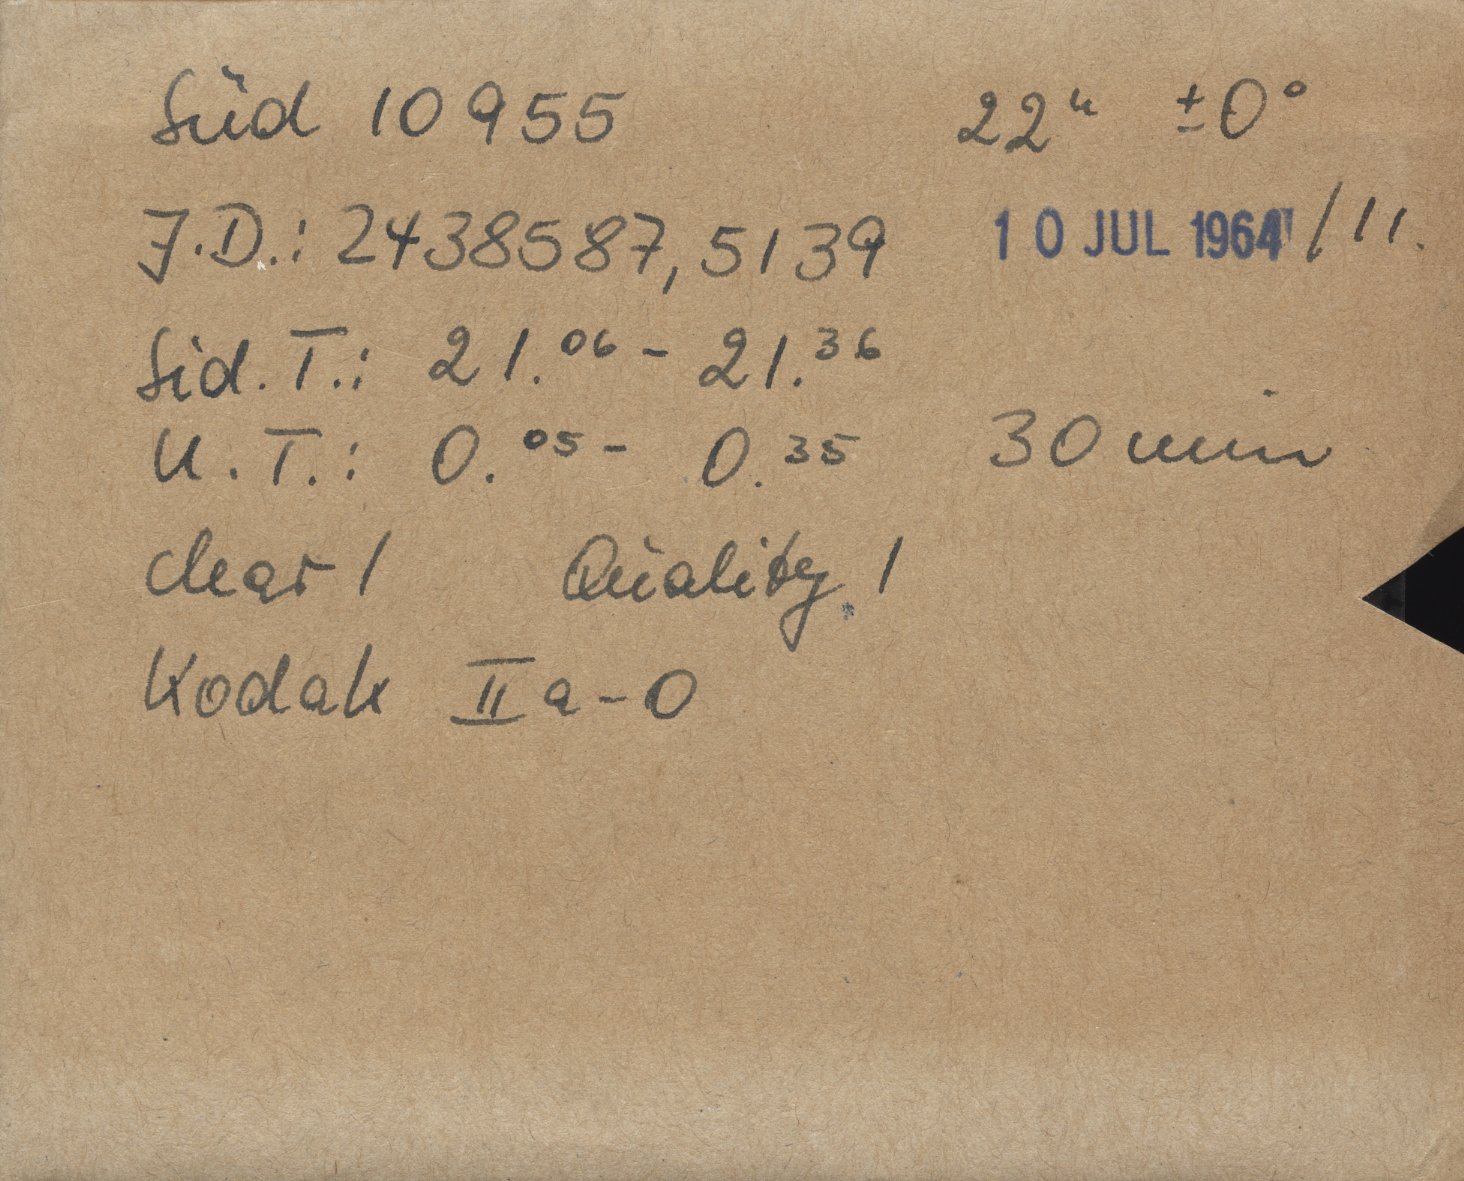 Süd 10955 22ʰ ±0°
J.D.: 2438587,5139 10 JUL 1964 / 11.
Sid. T.: 21.⁰⁶ - 21.³⁶
U. T.: 0.⁰⁵ - 0.³⁵ 30 min
clear 1 Quality 1
Kodak II a-O